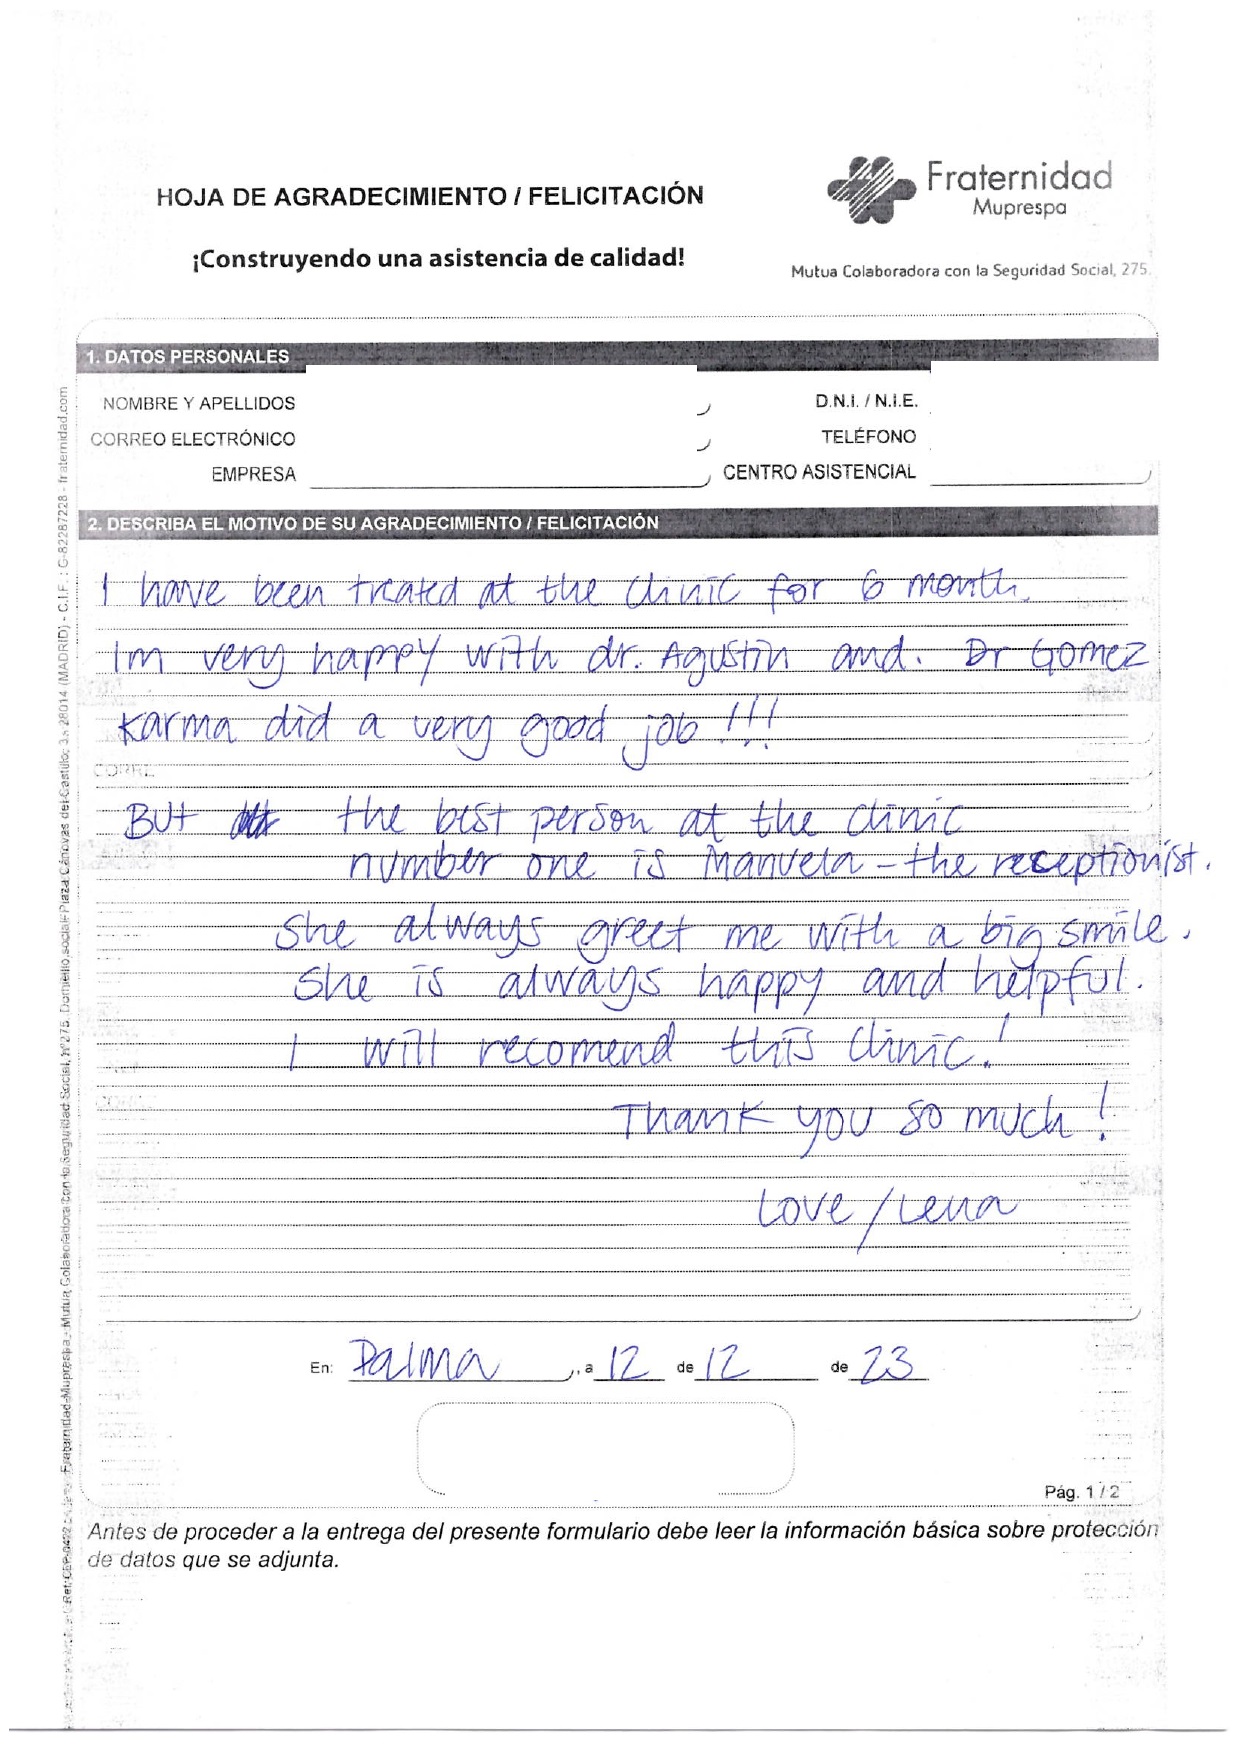 Fraternidad
Muprespa
HOJA DE AGRADECIMIENTO / FELICITACIÓN
¡Construyendo una asistencia de calidad!
Mutua Colaboradora con la Seguridad Social, 275.
1. DATOS PERSONALES
NOMBRE Y APELLIDOS D.N.I. / N.I.E.
CORREO ELECTRÓNICO TELÉFONO
EMPRESA CENTRO ASISTENCIAL
2. DESCRIBA EL MOTIVO DE SU AGRADECIMIENTO / FELICITACIÓN
I have been treated at the clinic for 6 month.
Im very happy with dr. Agustin and. Dr Gomez
Karma did a very good job !!!
But the best person at the clinic
number one is Manuela - the receptionist.
She always greet me with a big smile.
She is always happy and helpful.
I will recomend this clinic!
Thank you so much!
Love/Lena
En: Palma, a 12 de 12 de 23
Pág. 1 / 2
Antes de proceder a la entrega del presente formulario debe leer la información básica sobre protección
de datos que se adjunta.
Fraternidad-Muprespa - Mutua Colaboradora con la Seguridad Social, Nº275. Domicilio social: Plaza Cánovas del Castillo, 3 - 28014 (MADRID) - C.I.F. : G-82287228 - fraternidad.com